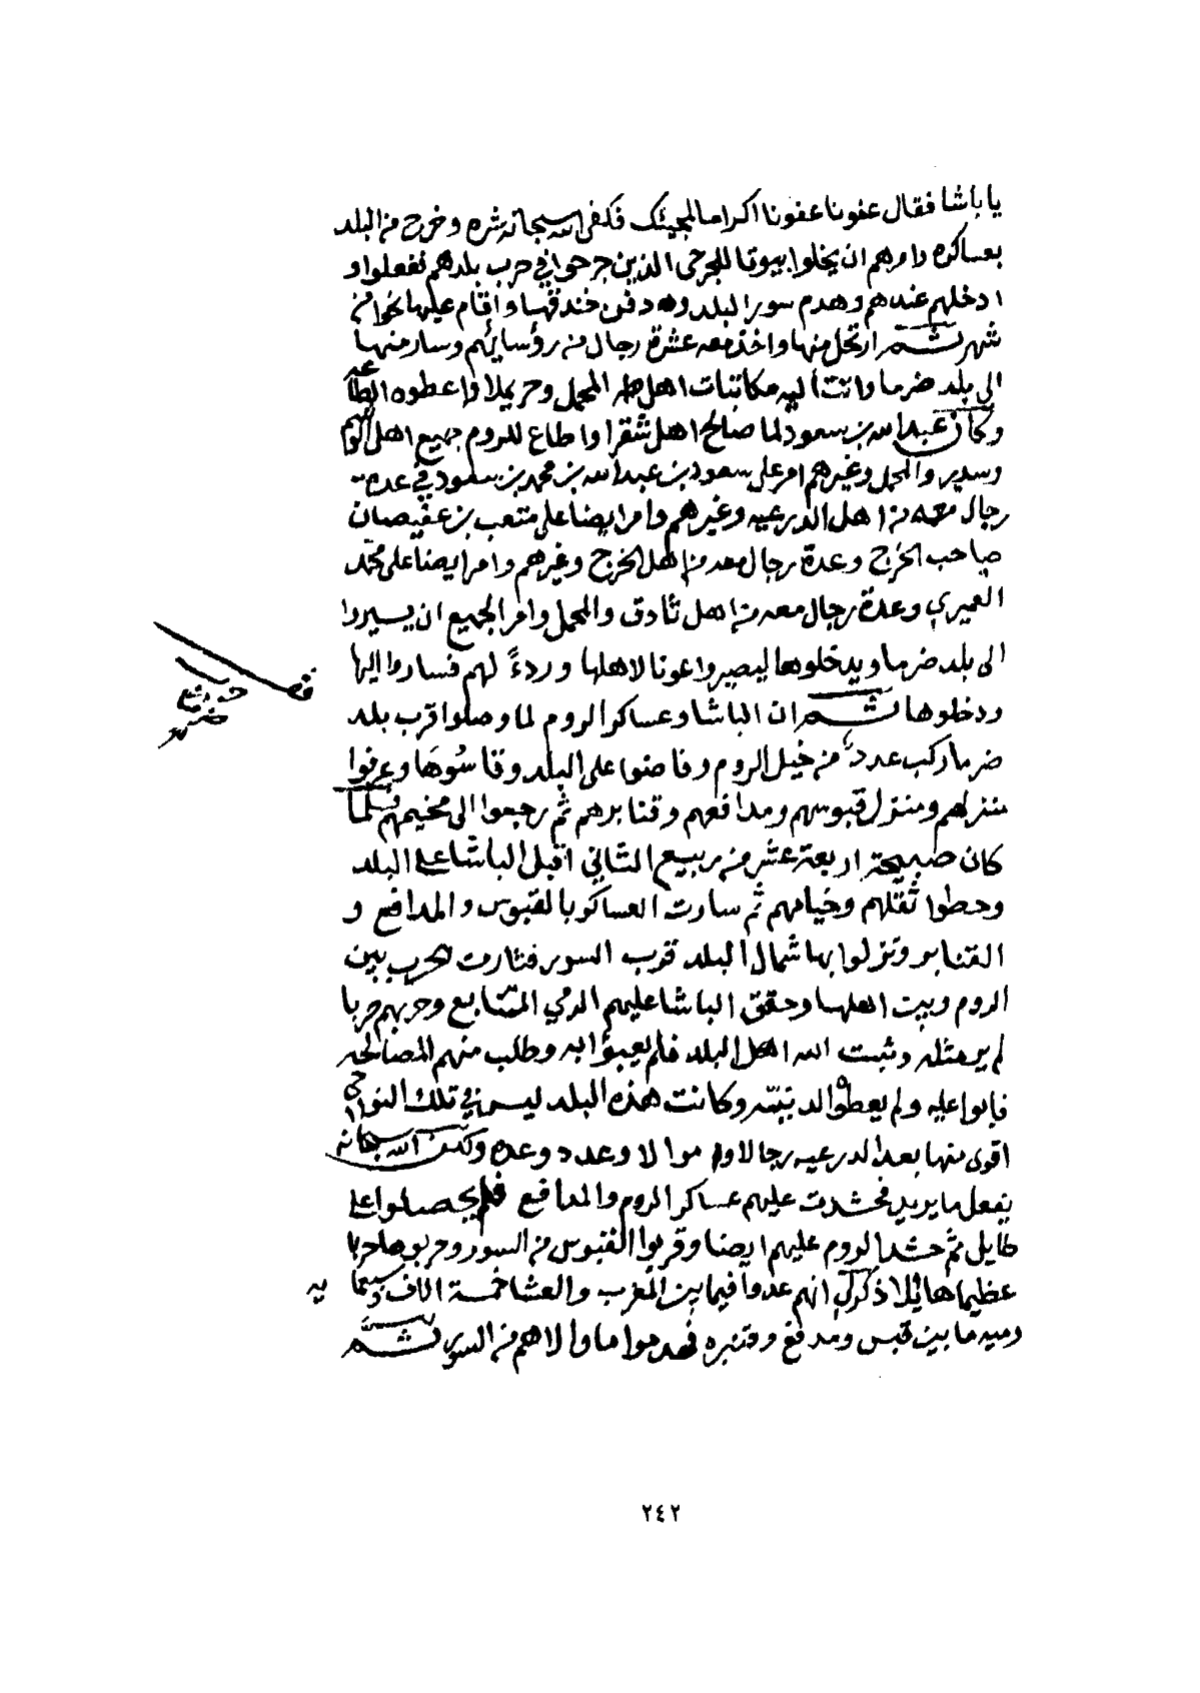 يا باشا فقال عفونا عفونا اكراما لمجيئك فكفى الله سبحانه شره وخرج من البلد
بعساكره وامرهم ان يخلوا بيوتا للجرحى الذين جرحوا في حرب بلدهم ففعلوا و
ادخلهم عندهم وهدم سور البلد ودفن خندقها واقام عليها نحوا من
شهر ثم ارتحل منها واخذ معه عشرة رجال من رؤسائهم وسار منها
الى بلد ضرما واتت اليه مكاتبات اهل المحمل وحريملا واعطوه الطاعه
وكان عبدالله بن سعود لما صالح اهل شقرا واطاع للروم جميع اهل الوشم
وسدير والمحمل وغيرهم امر على سعود بن عبدالله بن محمد بن سعود في عدة
رجال معه من اهل الدرعيه وغيرهم وامر ايضا على متعب بن عفيصان
صاحب الخرج وعدة رجال معه من اهل الخرج وغيرهم وامر ايضا على محمد
العميري وعدة رجال معه من اهل ثادق والمحمل وامر الجميع ان يسيروا
الى بلد ضرما ويدخلوها ليصيروا عونا لاهلها وردءً لهم فساروا اليها
ودخلوها ثم ان الباشا وعساكر الروم لما وصلوا قرب بلد
ضرما ركب عدد من خيل الروم وفاضوا على البلد وقاسُوهَا وعرفوا
منزلهم ومنزل قبوسهم ومدافعهم وقنابرهم ثم رجعوا الى مخيمهم فلما
كان صبيحة اربعة عشر من ربيع الثاني اقبل الباشا على البلد
وحطوا ثقلهم وخيامهم ثم سارت العساكر بالقبوس والمدافع و
القنابر ونزلوا بها شمال البلد قرب السور فثارت الحرب بين
الروم وبين اهلها وحقق الباشا عليهم الرمي المتتابع وحربهم حربا
لم ير مثله وثبت الله اهل البلد فلم يعبؤا به وطلب منهم المصالحه
فابوا عليه ولم يعطوه الدنيّه وكانت هذه البلد ليس في تلك النواحي
اقوى منها بعد الدرعيه رجالا واموالا وعدد وعده ولكن الله سبحانه
يفعل ما يريد فحشدت عليهم عساكر الروم والمدافع فلم يحصلوا على
طايل ثم حشد الروم عليهم ايضا وقربوا القبوس من السور وحربوها حربا
عظيما هائلا ذكر لي انهم عدوا فيما بين المغرب والعشا خمسة الاف وسبعماية
رميه ما بين قبس ومدفع وقنبره فهدموا ما والاهم من السور ثم
حرب
ضرما
٢٤٢